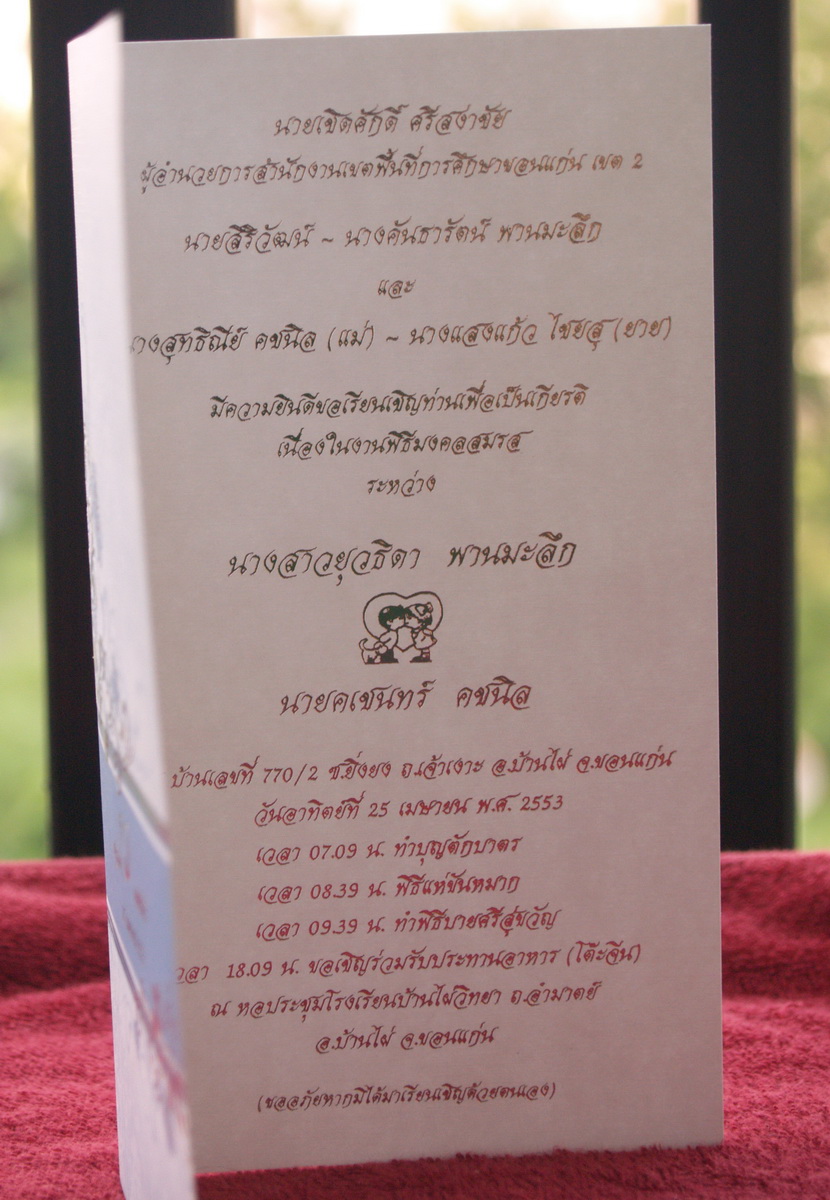 นายเชิดศักดิ์ ศรีสง่าชัย
ผู้อำนวยการสำนักงานเขตพื้นที่การศึกษาขอนแก่น เขต 2
นายสิริวัฒน์ ~ นางคันธารัตน์ พานมะลึก
และ
นางสุทธิณีย์ คชนิล (แม่) ~ นางแสงแก้ว ไชยสุ (ยาย)
มีความยินดีขอเรียนเชิญท่านเพื่อเป็นเกียรติ
เนื่องในงานพิธีมงคลสมรส
ระหว่าง
นางสาวยุวธิดา พานมะลึก
นายคเชนทร์ คชนิล
บ้านเลขที่ 770/2 ซ.ยิ่งยง ถ.เจ้าเงาะ อ.บ้านไผ่ จ.ขอนแก่น
วันอาทิตย์ที่ 25 เมษายน พ.ศ. 2553
เวลา 07.09 น. ทำบุญตักบาตร
เวลา 08.39 น. พิธีแห่ขันหมาก
เวลา 09.39 น. ทำพิธีบายศรีสู่ขวัญ
เวลา 18.09 น. ขอเชิญร่วมรับประทานอาหาร (โต๊ะจีน)
ณ หอประชุมโรงเรียนบ้านไผ่วิทยา ถ.อำมาตย์
อ.บ้านไผ่ จ.ขอนแก่น
(ขออภัยหากมิได้มาเรียนเชิญด้วยตนเอง)